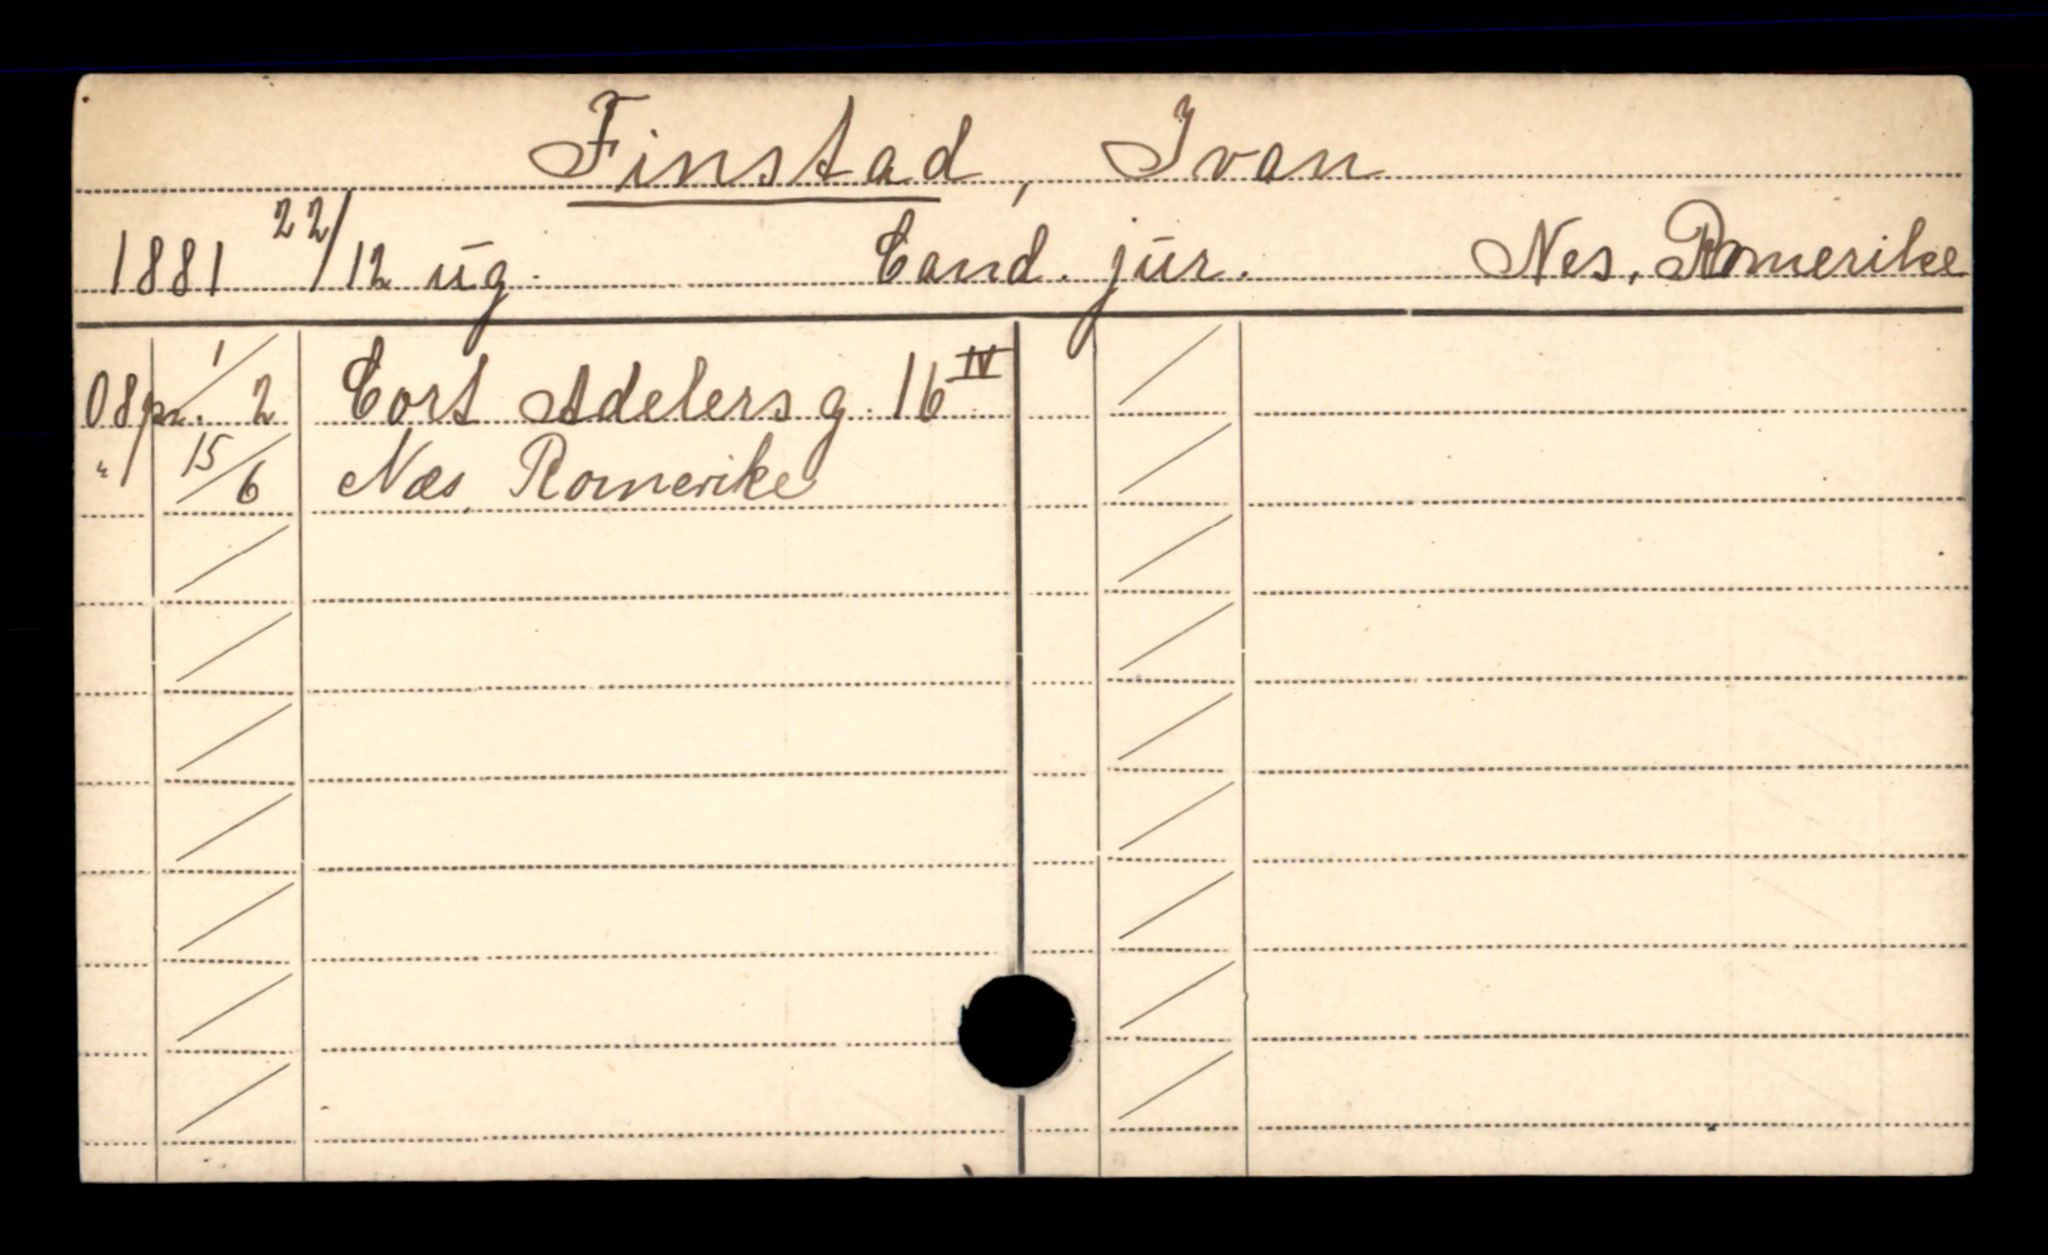 Finstad, Ivan
1881 22/12 ug. Cand. jur. Nes, Romerike
08 pr. 1/2 Cort Adelers g. 16 IV
" 15/6 Næs Romerike